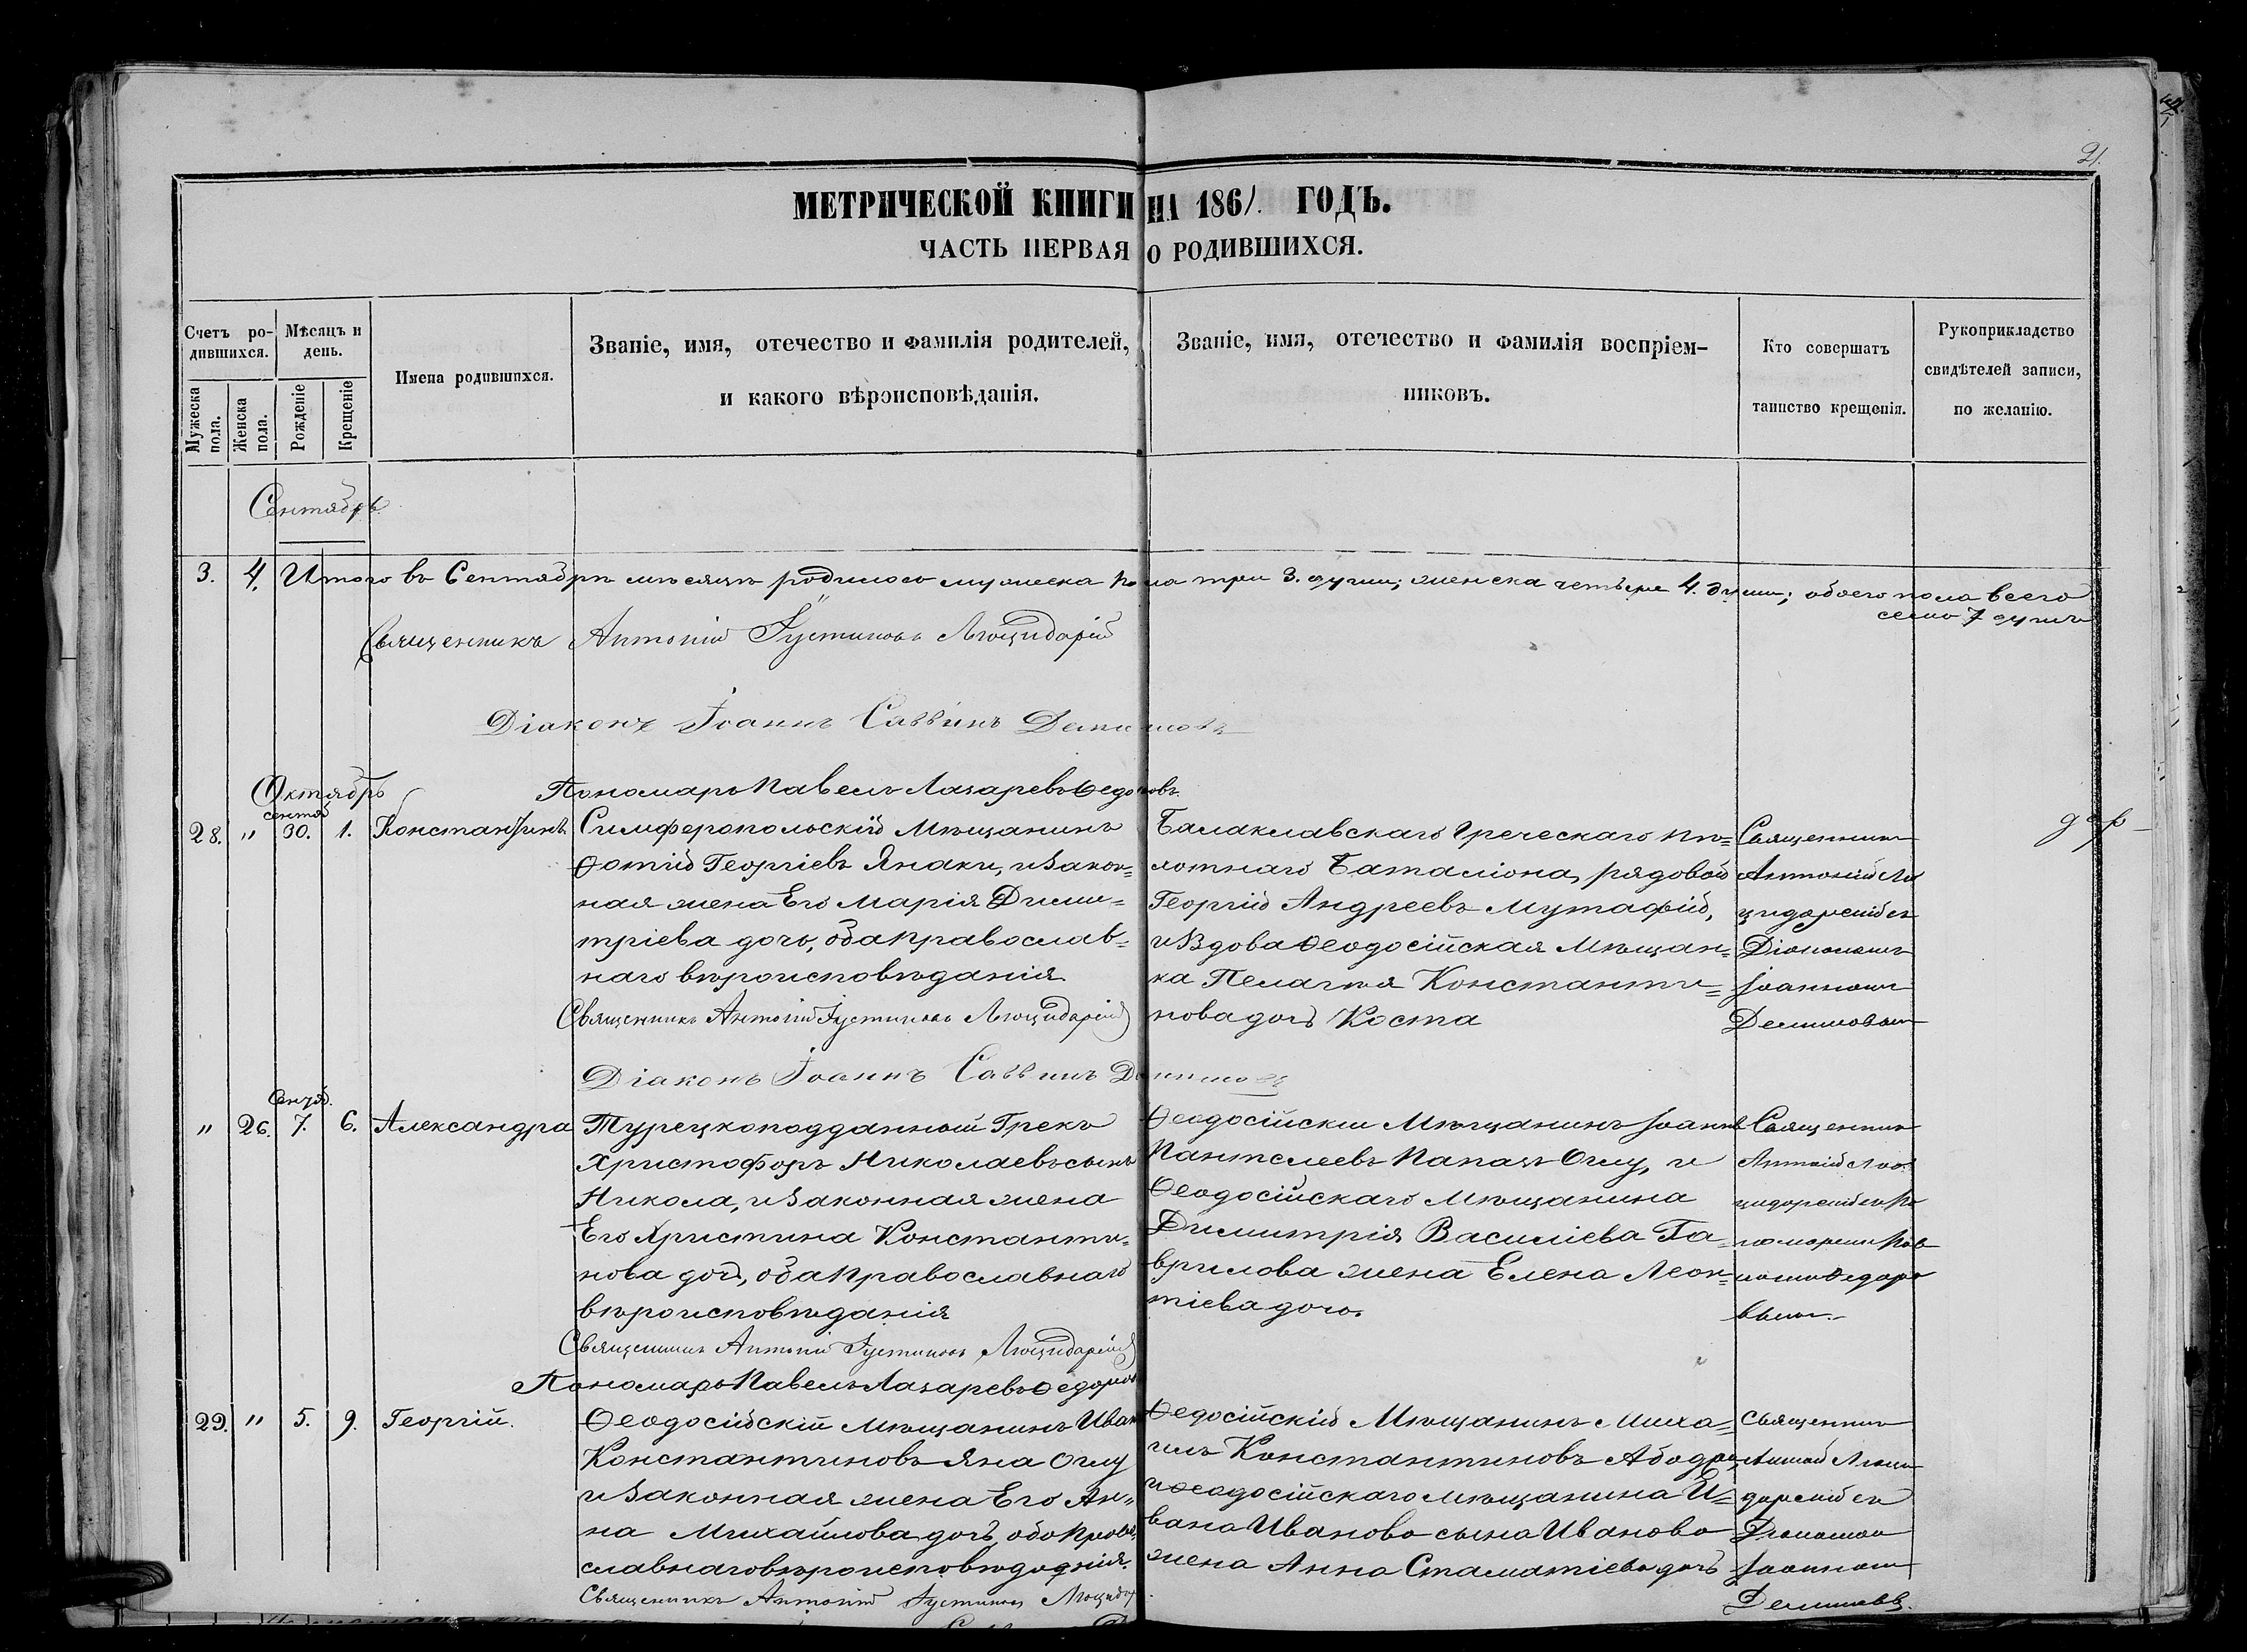 21.
МЕТРИЧЕСКОЙ КНИГИ НА 1861. ГОДЪ.
ЧАСТЬ ПЕРВАЯ О РОДИВШИХСЯ.
Счетъ ро-
дившихся.
Мужеска пола.
Женска пола.
Мѣсяцъ и
день.
Рожденіе
Крещеніе
Имена родившихся.
Званіе, имя, отечество и фамилія родителей,
и какого вѣроисповѣданія.
Званіе, имя, отечество и фамилія воспріем-
никовъ.
Кто совершатъ
таинство крещенія.
Рукоприкладство
свидѣтелей записи,
по желанію.
Сентябрь
3. 4. Итого въ Сентябрѣ мѣсяцѣ родилось мужеска пола три 3. души; женска четыре 4. души; обоего пола всего
семь 7 душъ
Священникъ Антоній Іустиновъ Люцидарій
Діаконъ Іоаннъ Саввинъ Демишовъ
Пономарь Павелъ Лазаревъ Ѳедоровъ
Октябрь
28. " сентяб 30. 1. Константинъ
Симферопольскій Мѣщанинъ
Ѳотій Георгіевъ Янаки, и Закон=
ная жена Его Марія Дими=
тріева дочь, оба православ=
наго вѣроисповѣданія
Священникъ Антоній Іустиновъ Люцидарій
Діаконъ Іоаннъ Саввинъ Демишовъ
Балаклавскаго Греческаго пѣ=
хотнаго Баталіона, рядовой
Георгій Андреевъ Мутафій,
и Вдова Ѳеодосійская Мѣщан=
ка Пелагія Константи=
нова дочь Коста
Священникъ
Антоній Лю
цидарій съ
Діакономъ
Іоанномъ
Демишовым
" 26. Сентяб. 7. 6. Александра
Турецкоподданный Грекъ
Христофоръ Николаевъ сынъ
Никола, и Законная жена
Его Христина Константи=
нова дочь, оба Православнаго
вѣроисповѣданія
Священникъ Антоній Іустиновъ Люцидарій
Пономарь Павелъ Лазаревъ Ѳедоровъ
Ѳеодосійскій Мѣщанинъ Іоаннъ
Пантелеевъ Папазъ Оглу, и
Ѳеодосійскаго Мѣщанина
Димитрія Василіева Га=
врилова жена Елена Леон=
тіева дочь.
Священникъ
Антоній Лю
цидарій съ По
номаремъ Пав
ломъ Ѳедоро
вымъ.
29. " 5. 9. Георгій.
Ѳеодосійскій Мѣщанинъ Иванъ
Константиновъ Яна Оглу
и Законная жена Его Ан=
на Михайлова дочь, оба Право
славнаго вѣроисповѣданія.
Священникъ Антоній Іустиновъ Люцидар
Ѳедосійскій Мѣщанинъ Миха=
илъ Константиновъ
и Ѳеодосійскаго мѣщанина И=
вана Иванова сына Иванова
жена Анна Стаматіева дочь
Священникъ
Антоній Люци
дарій съ
Діакономъ
Іоанномъ
Демишовъ.